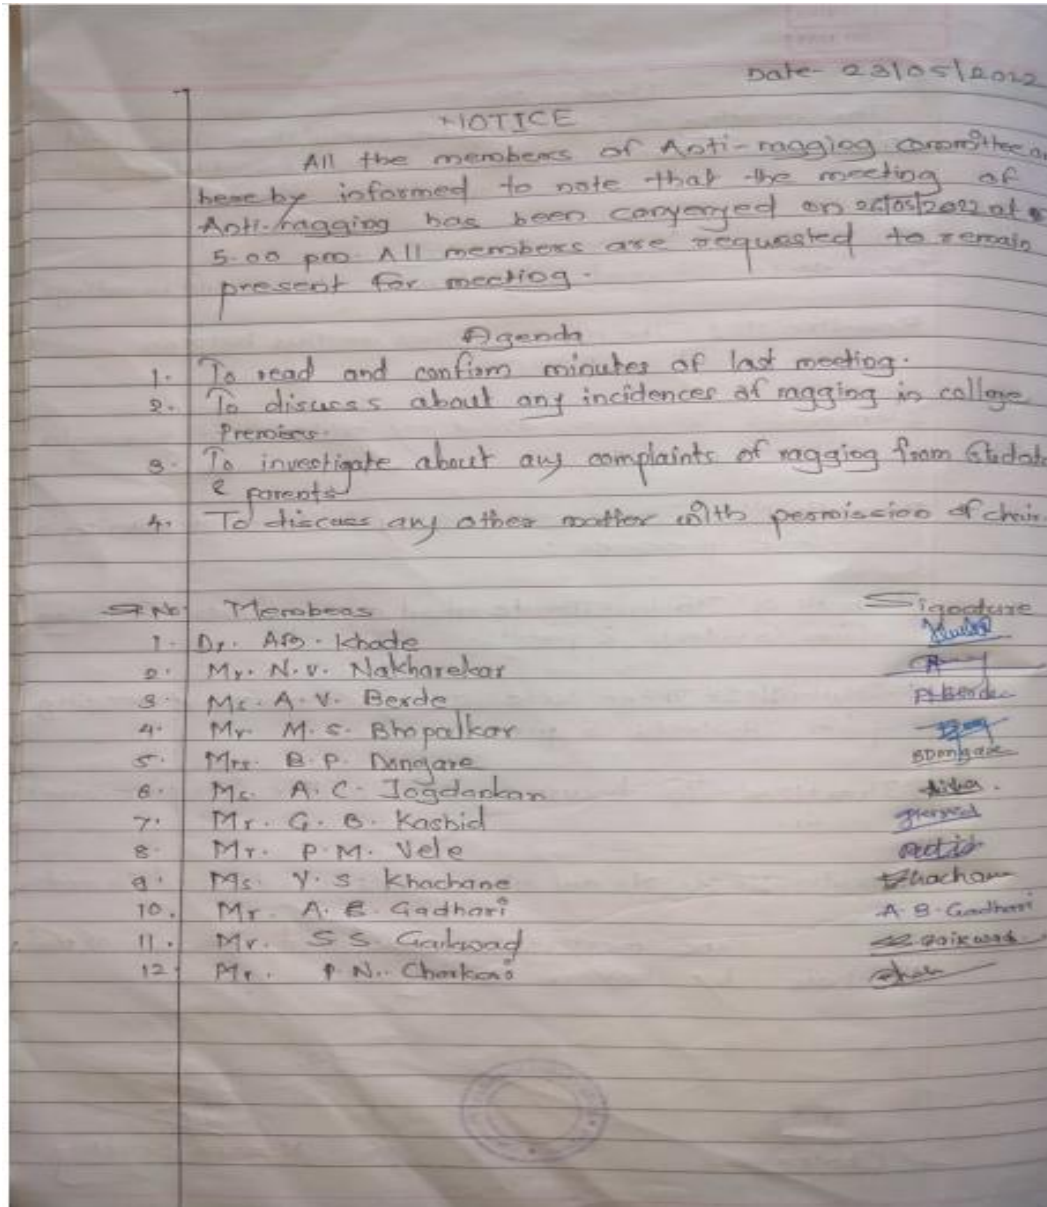 Date- 23/05/2022
NOTICE
All the members of Anti-ragging committee
here by informed to note that the meeting of
Anti-ragging has been convenged on at
5.00 pm. All members are requested to remain
present for meeting.
Agenda
1. To read and confirm minutes of last meeting.
2. To discuss about any incidences of ragging in college
Premises.
3. To investigate about any complaints of ragging from
& parents
4. To discuss any other matter with permission of chair.
Sr No Members Signature
1. Dr. Khade
2. Mr. N.V. Nakharekar
3. Ms. A.V. Berde
4. Mr. M.S. Bhopalkar
5. Mrs. B.P. Dongare BDongare
6. Ms. A.C. Jogdankar
7. Mr. G.B. Kashid
8. Mr. P.M. Vele
9. Ms. Y.S. Khachane
10. Mr. A.B. Gadhari A.B. Gadhari
11. Mr. S S Gaikwad
12 Mr. P.N.